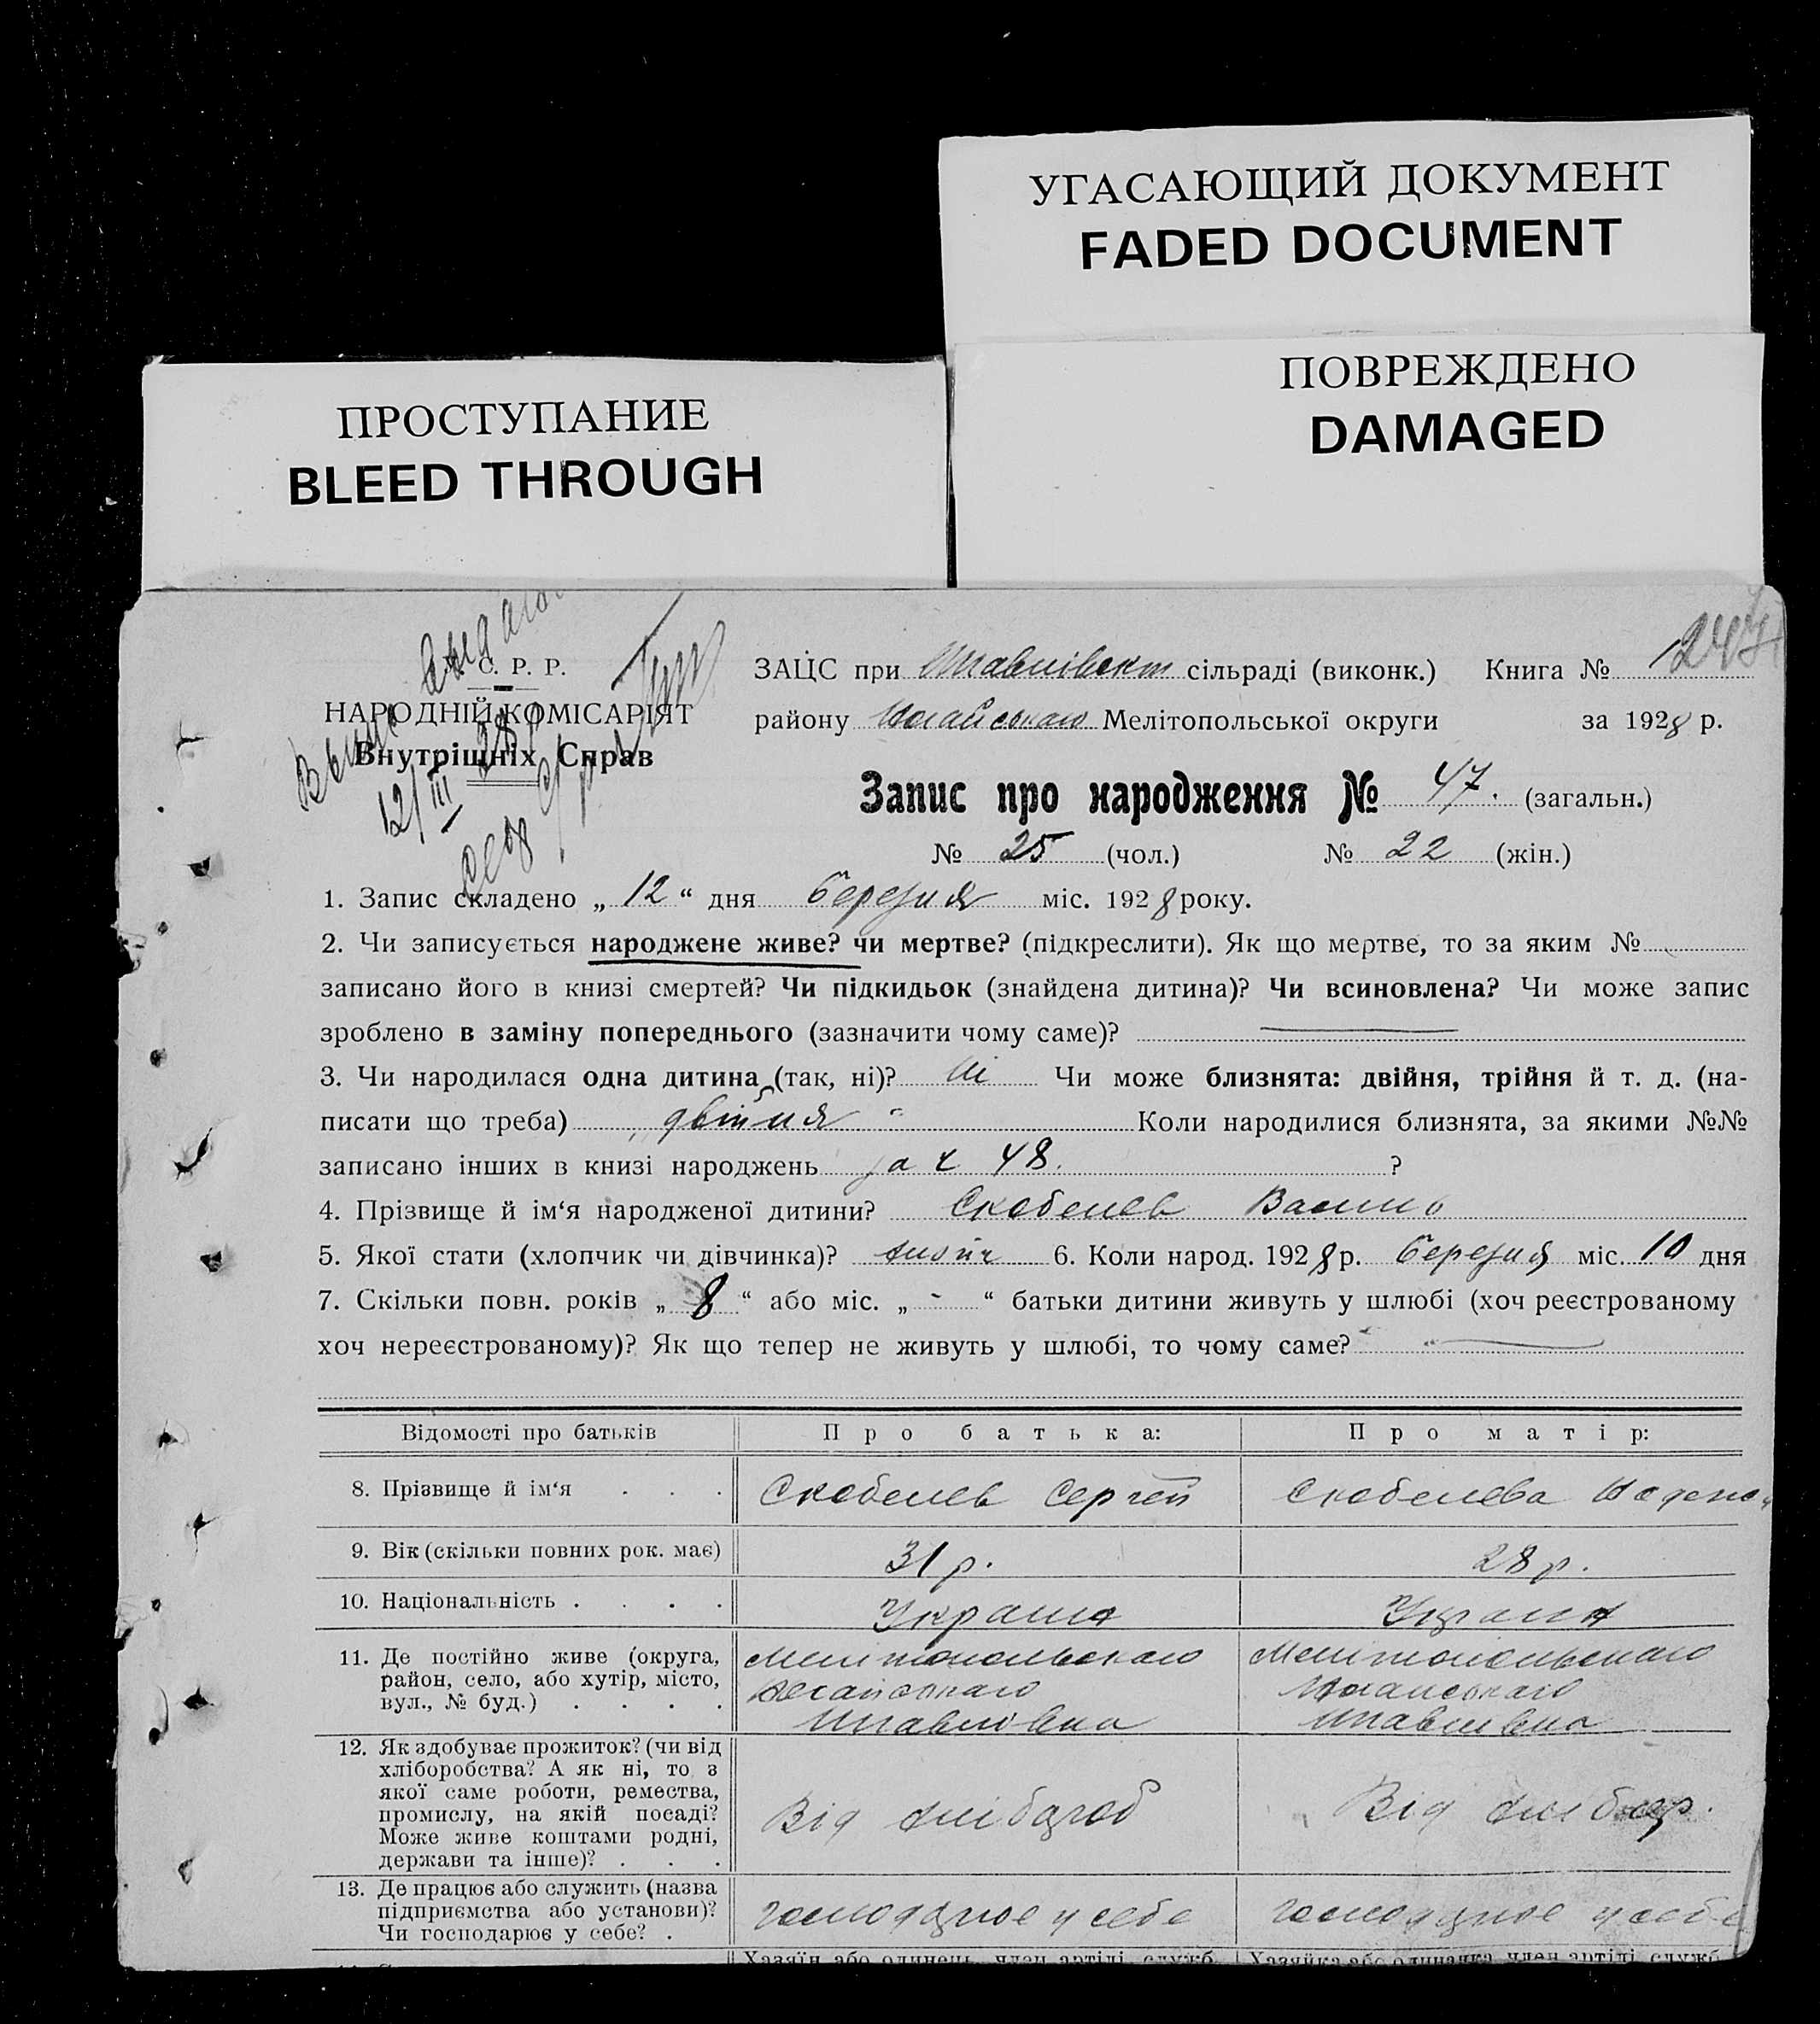 УГАСАЮЩИЙ ДОКУМЕНТ
FADED DOCUMENT
ПОВРЕЖДЕНО
DAMAGED
ПРОСТУПАНИЕ
BLEED THROUGH
С. Р. Р.
НАРОДНІЙ КОМІСАРІЯТ
Внутрішніх Справ
12/III 28
ЗАЦС при сільраді (виконк.) Книга № 247
району Ногайського Мелітопольської округи за 1928 р.
Запис про народження № 47. (загальн.)
№ 25 (чол.) № 22 (жін.)
1. Запис складено „ 12 “ дня березня міс. 1928 року.
2. Чи записується народжене живе? чи мертве? (підкреслити). Як що мертве, то за яким №
записано його в книзі смертей? Чи підкидьок (знайдена дитина)? Чи всиновлена? Чи може запис
зроблено в заміну попереднього (зазначити чому саме)?
3. Чи народилася одна дитина (так, ні)? Ні Чи може близнята: двійня, трійня й т. д. (на-
писати що треба) „двійня“ Коли народилися близнята, за якими №№
записано інших в книзі народжень за ч 48. ?
4. Прізвище й ім‘я народженої дитини? Скобелев Василь
5. Якої стати (хлопчик чи дівчинка)? хлопч 6. Коли народ. 1928 р. березня міс. 10 дня
7. Скільки повн. років „ 8 “ або міс. „ - “ батьки дитини живуть у шлюбі (хоч реєстрованому
хоч нереєстрованому)? Як що тепер не живуть у шлюбі, то чому саме?
Відомості про батьків Про батька: Про матір:
8. Прізвище й ім‘я . . . Скобелев Сергей Скобелева
9. Вік (скільки повних рок. має) 31 р. 28 р.
10. Національність . . . . Україна Україна
11. Де постійно живе (округа, Мелітопольського Мелітопольського
район, село, або хутір, місто, Ногайського Ногайського
вул., № буд.) . . . .
12. Як здобуває прожиток? (чи від
хліборобства? А як ні, то з
якої саме роботи, ремества,
промислу, на якій посаді? Від хлібороб Від хлібор.
Може живе коштами родні,
держави та інше)? . . .
13. Де працює або служить (назва
підприємства або установи)? господарює у себе господарює у себе
Чи господарює у себе? .
Хазяїн або одинець, член артілі, служб. Хазяйка або одиначка, член артілі, служб.